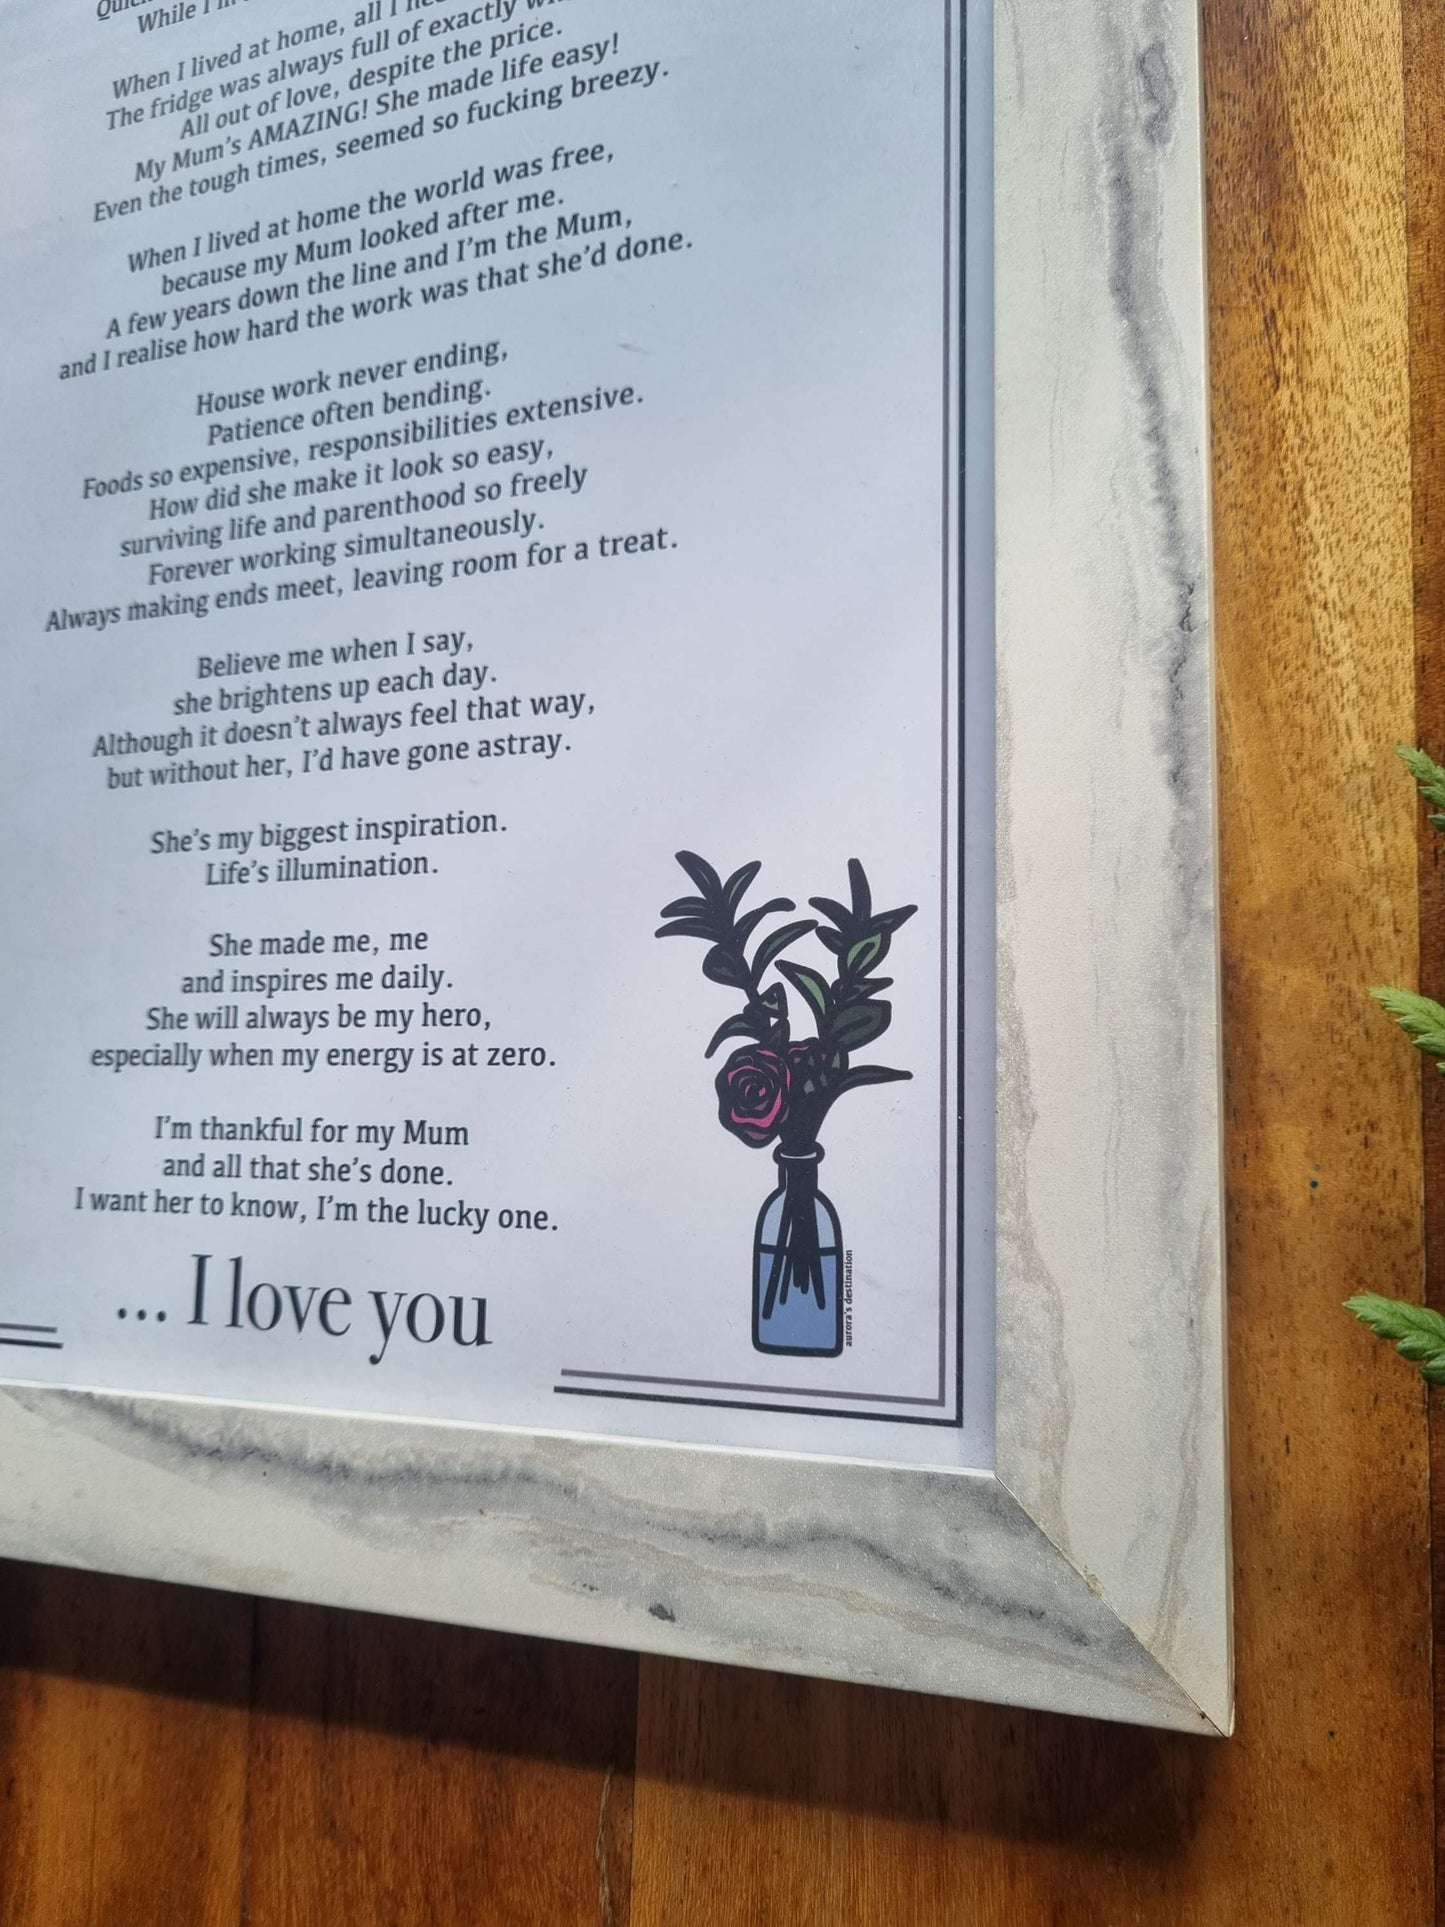 While I
When I lived at home, all I
The fridge was always full of exactly
All out of love, despite the price.
My Mum's AMAZING! She made life easy!
Even the tough times, seemed so fucking breezy.
When I lived at home the world was free,
because my Mum looked after me.
A few years down the line and I'm the Mum,
and I realise how hard the work was that she'd done.
House work never ending,
Patience often bending.
Foods so expensive, responsibilities extensive.
How did she make it look so easy,
surviving life and parenthood so freely
Forever working simultaneously.
Always making ends meet, leaving room for a treat.
Believe me when I say,
she brightens up each day.
Although it doesn't always feel that way,
but without her, I'd have gone astray.
She's my biggest inspiration.
Life's illumination.
She made me, me
and inspires me daily.
She will always be my hero,
especially when my energy is at zero.
I'm thankful for my Mum
and all that she's done.
I want her to know, I'm the lucky one.
... I love you
aurora's destination